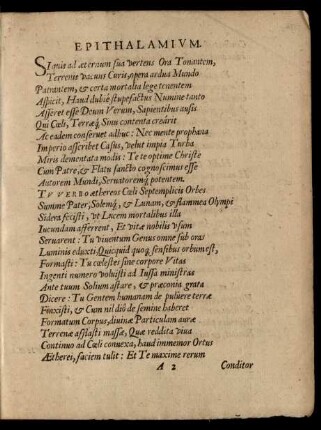 EPITHALAMIVM.
SIquis ad æternum sua vertens Ora Tonantem,
Terrenis vacuus Curis, opera ardua Mundo
Patrantem, & certa mortalia lege tenentem
Aspicit, Haud dubiè stupefactus Numine tanto
Asseret esse Deum Verum, Sapientibus ausis
Qui Cœli, Terræq́; Sinu contenta creârit
Ac eadem conseruet adhuc: Nec mente prophana
Imperio ascribet Casus, velut impia Turba
Miris dementata modis: Te te optime Christe
Cum Patre, & Flatu sancto cognoscimus esse
Autorem Mundi, Seruatoremq́; potentem.
TV VERBO æthereos Cœli Septemplicis Orbes
Summe Pater, Solemq́, & Lunam, & flammea Olympi
Sidera fecisti, vt Lucem mortalibus illa
Iucundam afferrent, Et vitæ nobilis vsum
Seruarent: Tu viuentum Genus omne sub oras
Luminis eduxti: Quicquid quoq́; sensibus orbum est,
Formasti: Tu cælestes sine corpore Vitas
Ingenti numero voluisti ad Iussa ministras
Ante tuum Solium astare, & præconia grata
Dicere: Tu Gentem humanam de puluere terræ
Finxisti, & Cum nil diô de semine haberet
Formatum Corpus, diuinæ Particulam auræ
Terrenæ afflasti massæ, Quæ reddita viua
Continuo ad Cœli conuexa, haud immemor Ortus
Ætherei, faciem tulit: Et Te maxime rerum
A 2 Conditor